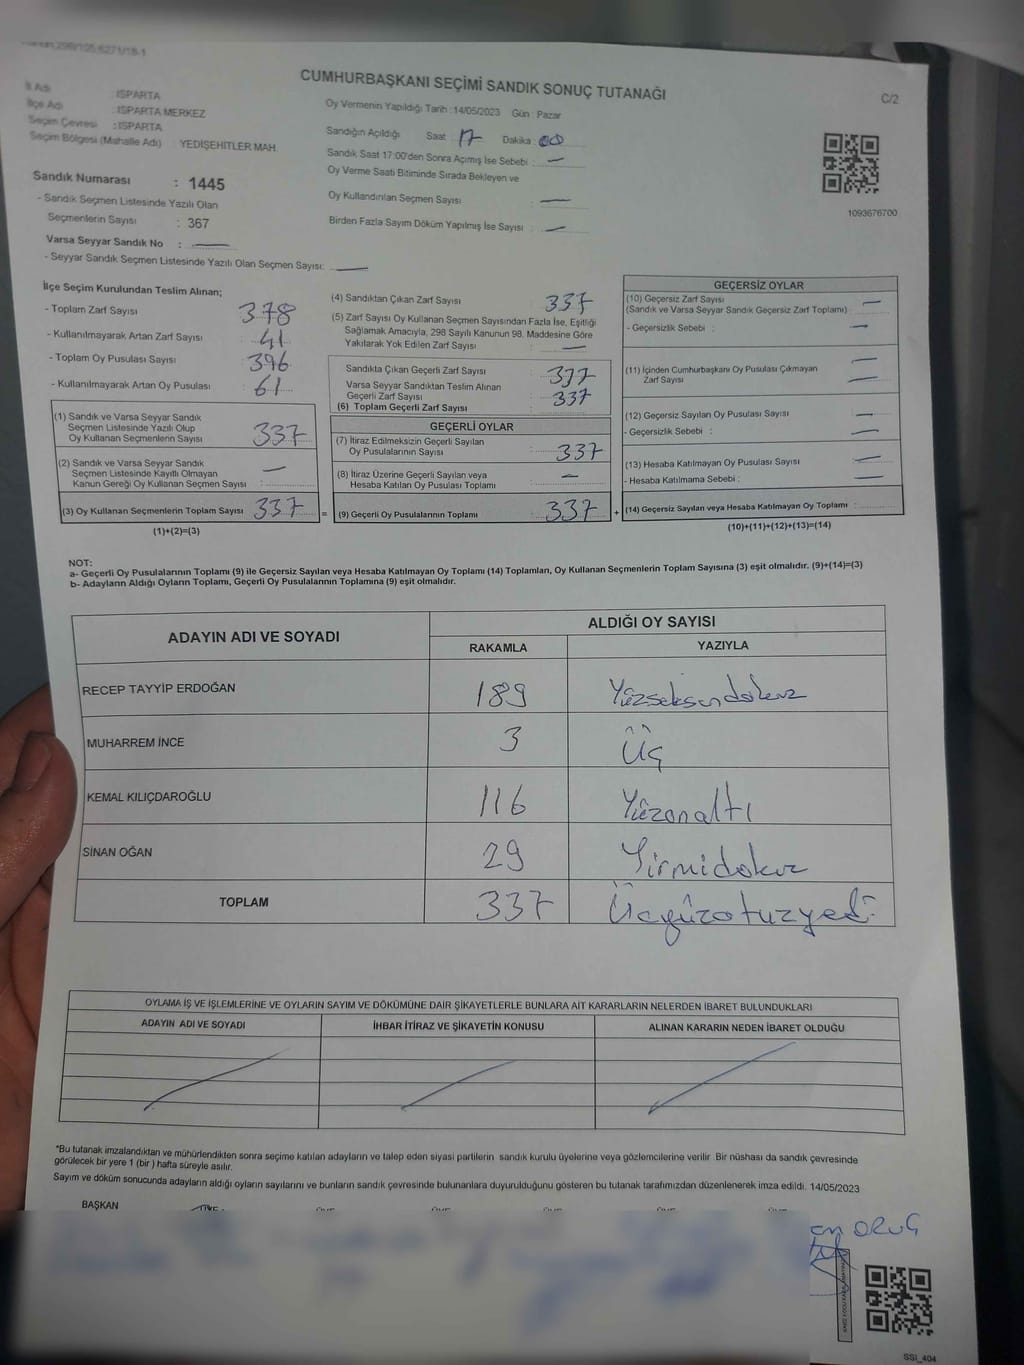 CUMHURBAŞKANI SEÇİMİ SANDIK SONUÇ TUTANAĞI
C/2
İl Adı : ISPARTA
İlçe Adı : ISPARTA MERKEZ
Seçim Çevresi : ISPARTA
Seçim Bölgesi (Mahalle Adı) : YEDİŞEHİTLER MAH.
Sandık Numarası : 1445
- Sandık Seçmen Listesinde Yazılı Olan
Seçmenlerin Sayısı : 367
Varsa Seyyar Sandık No : —
- Seyyar Sandık Seçmen Listesinde Yazılı Olan Seçmen Sayısı: —
Oy Vermenin Yapıldığı Tarih : 14/05/2023 Gün : Pazar
Sandığın Açıldığı Saat : 17 Dakika : 00
Sandık Saat 17:00'den Sonra Açılmış İse Sebebi : —
Oy Verme Saati Bitiminde Sırada Bekleyen ve
Oy Kullandırılan Seçmen Sayısı : —
Birden Fazla Sayım Döküm Yapılmış İse Sayısı : —
1093676700
İlçe Seçim Kurulundan Teslim Alınan;
- Toplam Zarf Sayısı : 378
- Kullanılmayarak Artan Zarf Sayısı : 41
- Toplam Oy Pusulası Sayısı : 396
- Kullanılmayarak Artan Oy Pusulası : 61
(1) Sandık ve Varsa Seyyar Sandık
Seçmen Listesinde Yazılı Olup
Oy Kullanan Seçmenlerin Sayısı : 337
(2) Sandık ve Varsa Seyyar Sandık
Seçmen Listesinde Kayıtlı Olmayan
Kanun Gereği Oy Kullanan Seçmen Sayısı : —
(3) Oy Kullanan Seçmenlerin Toplam Sayısı : 337
(1)+(2)=(3)
(4) Sandıktan Çıkan Zarf Sayısı : 337
(5) Zarf Sayısı Oy Kullanan Seçmen Sayısından Fazla İse, Eşitliği
Sağlamak Amacıyla, 298 Sayılı Kanunun 98. Maddesine Göre
Yakılarak Yok Edilen Zarf Sayısı : —
Sandıkta Çıkan Geçerli Zarf Sayısı : 337
Varsa Seyyar Sandıktan Teslim Alınan
Geçerli Zarf Sayısı : 337
(6) Toplam Geçerli Zarf Sayısı
GEÇERLİ OYLAR
(7) İtiraz Edilmeksizin Geçerli Sayılan
Oy Pusulalarının Sayısı : 337
(8) İtiraz Üzerine Geçerli Sayılan veya
Hesaba Katılan Oy Pusulası Toplamı : —
= (9) Geçerli Oy Pusulalarının Toplamı : 337 +
GEÇERSİZ OYLAR
(10) Geçersiz Zarf Sayısı : —
(Sandık ve Varsa Seyyar Sandık Geçersiz Zarf Toplamı)
- Geçersizlik Sebebi : —
(11) İçinden Cumhurbaşkanı Oy Pusulası Çıkmayan —
Zarf Sayısı : —
(12) Geçersiz Sayılan Oy Pusulası Sayısı : —
- Geçersizlik Sebebi : —
(13) Hesaba Katılmayan Oy Pusulası Sayısı : —
- Hesaba Katılmama Sebebi : —
(14) Geçersiz Sayılan veya Hesaba Katılmayan Oy Toplamı :
(10)+(11)+(12)+(13)=(14)
NOT:
a- Geçerli Oy Pusulalarının Toplamı (9) ile Geçersiz Sayılan veya Hesaba Katılmayan Oy Toplamı (14) Toplamları, Oy Kullanan Seçmenlerin Toplam Sayısına (3) eşit olmalıdır. (9)+(14)=(3)
b- Adayların Aldığı Oyların Toplamı, Geçerli Oy Pusulalarının Toplamına (9) eşit olmalıdır.
ADAYIN ADI VE SOYADI ALDIĞI OY SAYISI
RAKAMLA YAZIYLA
RECEP TAYYİP ERDOĞAN 189 Yüzseksendokuz
MUHARREM İNCE 3 Üç
KEMAL KILIÇDAROĞLU 116 Yüzonaltı
SİNAN OĞAN 29 Yirmidokuz
TOPLAM 337 Üçyüzotuzyedi
OYLAMA İŞ VE İŞLEMLERİNE VE OYLARIN SAYIM VE DÖKÜMÜNE DAİR ŞİKAYETLERLE BUNLARA AİT KARARLARIN NELERDEN İBARET BULUNDUKLARI
ADAYIN ADI VE SOYADI İHBAR İTİRAZ VE ŞİKAYETİN KONUSU ALINAN KARARIN NEDEN İBARET OLDUĞU
*Bu tutanak imzalandıktan ve mühürlendikten sonra seçime katılan adayların ve talep eden siyasi partilerin sandık kurulu üyelerine veya gözlemcilerine verilir Bir nüshası da sandık çevresinde
görülecek bir yere 1 (bir) hafta süreyle asılır.
Sayım ve döküm sonucunda adayların aldığı oyların sayılarını ve bunların sandık çevresinde bulunanlara duyurulduğunu gösteren bu tutanak tarafımızdan düzenlenerek imza edildi. 14/05/2023
BAŞKAN
ORUÇ
SSI_404